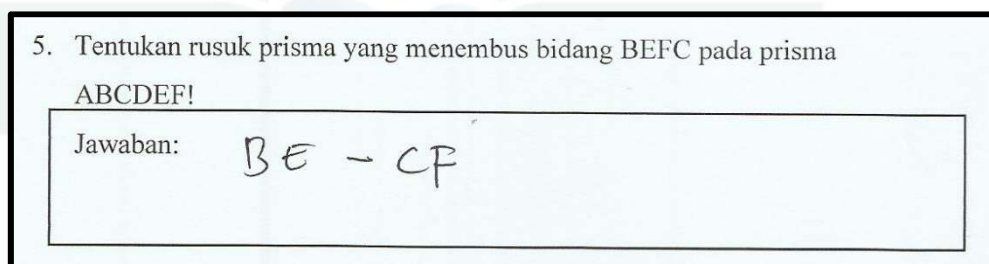 5. Tentukan rusuk prisma yang menembus bidang BEFC pada prisma
ABCDEF!
Jawaban: BE - CF